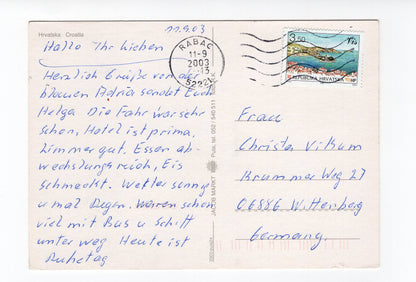 11.9.03
Hrvatska Croatia
Hallo Ihr Lieben
Herzlich Grüße von der
blauen Adria sendet Euch
Helga. Die Fahr war sehr
schön, Hotel ist prima,
Zimmer gut. Essen ab-
wechslungsreich, Eis
schmeckt. Wetter sonnig
u mal Regen. Waren schon
viel mit Bus u Schiff
unter weg Heute ist
Ruhetag
RABAC
11-9
2003
-13
3.50
REPUBLIKA HRVATSKA
Frau
Christa Vikum
Krummer Weg 27
06886 Wittenberg
Germany.